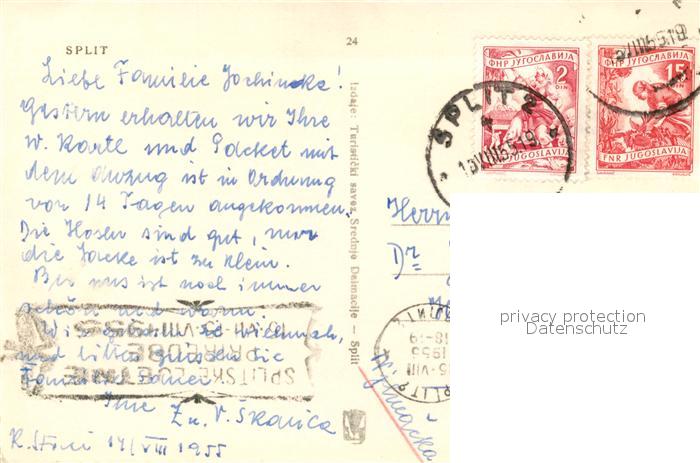 SPLIT
24
Liebe Familie Jochinke!
Gestern erhalten wir Ihre
w. Karte und Packet mit
dem Anzug ist in Ordnung
vor 14 Tagen angekommen.
Die Hosen sind gut, nur
die Jacke ist zu klein.
Bei uns ist noch immer
schön und warm.
und bitte grüssen Sie
Familie
Ihre Zn. V. Škarica
K. Stari 14/VIII 1955
Izdaje: Turistički savez Srednje Dalmacije — Split
ФНР ЈУГОСЛАВИЈА
2
DIN
FNR JUGOSLAVIJA
ФНР ЈУГОСЛАВИЈА
15
DIN
FNR JUGOSLAVIJA
SPLIT 2
13.VIII.55.19
SPLITSKE LJETNE
PRIREDBE
Herrn
Dr
Njemačka
privacy protection
Datenschutz